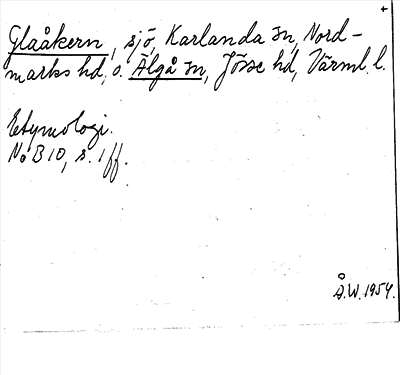 +
Glaåkern, sjö, Karlanda sn, Nord-
marks hd, o. Älgå sn, Jösse hd, Värml. l.
Etymologi.
NoB 10, s. 1 ff.
Å.W. 1954.